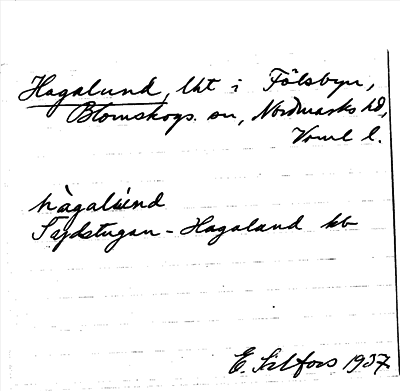 Hagalund, lht i Fölsbyn,
Blomskogs sn, Nordmarks hd,
Verml l.
hàgalúnd
Sydstugan - Hagaland kb
E. Silfors 1937